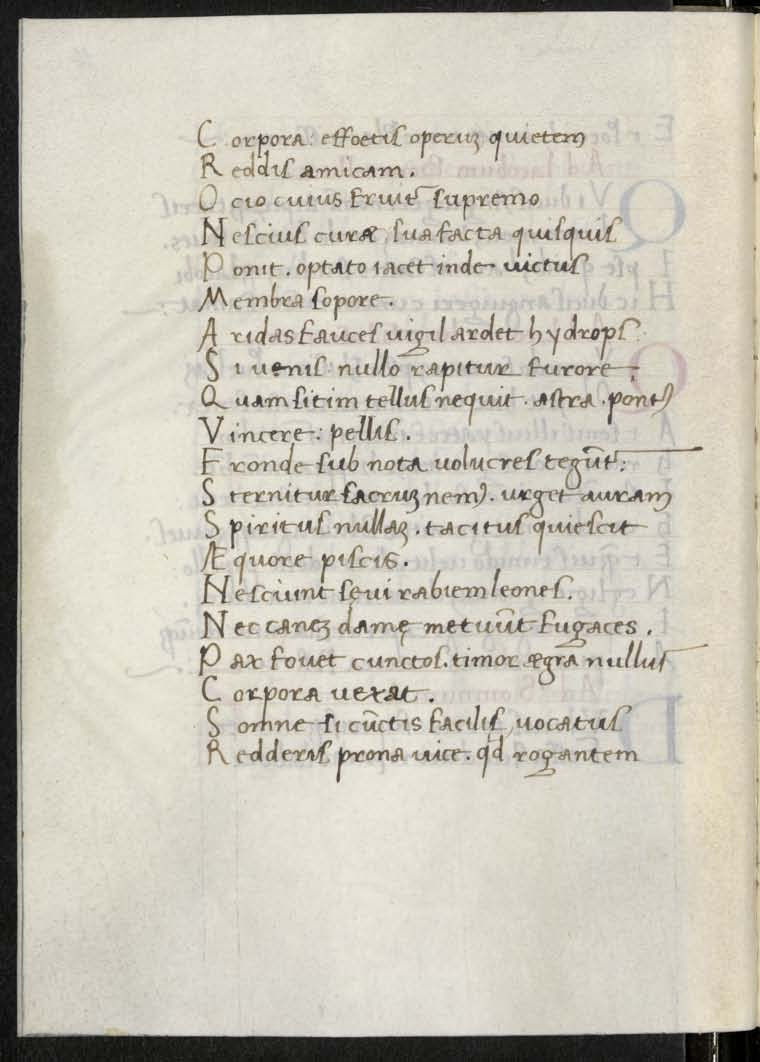 Corpora: effoetis operuʒ quietem
Reddis amicam.
Ocio cuius fruit̄ supremo
Nescius curæ, sua facta quisquis
Ponit. optato iacet inde uictus
Membra sopore.
Aridas fauces uigil ardet hydrops
Si uenis: nullo rapitur furore
Quam sitim tellus nequit. astra. pontꝰ
Vincere: pellis.
Fronde sub nota uolucres tegūt:
Sternitur sacruʒ nemꝰ. urget auram
Spiritus nullaʒ. tacitus quiescit
Æquore piscis.
Nesciunt sęui rabiem leones.
Nec caneʒ damę metuūt fugaces.
Pax fouet cunctos. timor ægra nullus
Corpora uexat.
Somne si cūctis facilis, uocatus
Redderis prona uice. qd rogantem